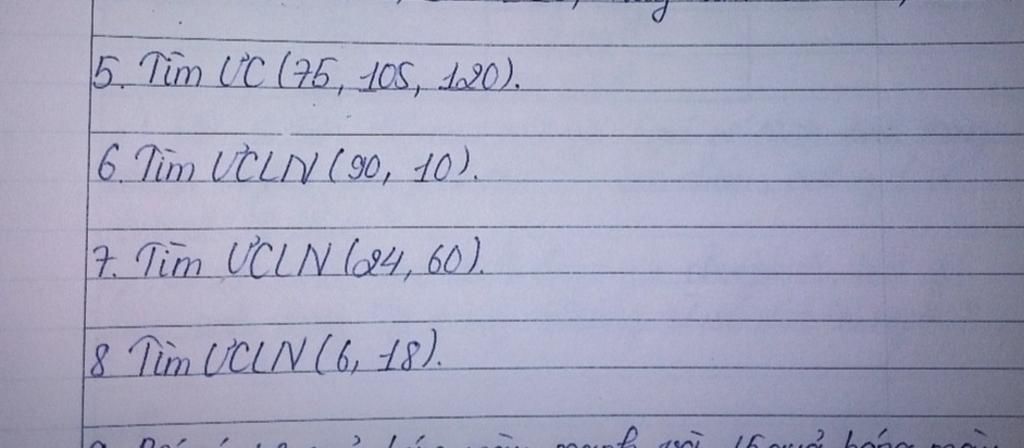 5. Tìm ƯC (75, 105, 120).
6. Tìm ƯCLN (90, 10).
7. Tìm ƯCLN (24, 60).
8 Tìm ƯCLN (6, 18).